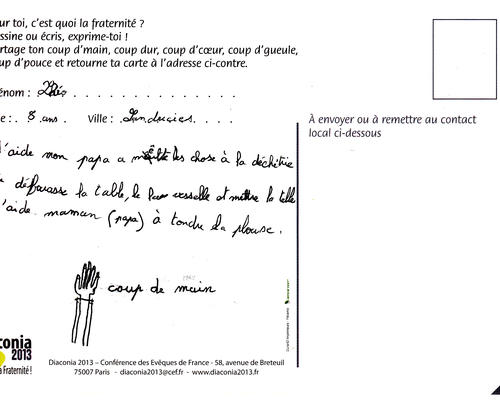 ur toi, c'est quoi la fraternité ?
ssine ou écris, exprime-toi !
rtage ton coup d'main, coup dur, coup d'cœur, coup d'gueule,
up d'pouce et retourne ta carte à l'adresse ci-contre.
énom :
e : 8 ans . Ville : Landrecies . . . .
À envoyer ou à remettre au contact
local ci-dessous
'aide mon papa a mettre les chose à la déchétrie
débarasse la table, le lave vesselle et mettre la telle
'aide maman (papa) à tondre la plouse.
coup de main
aconia
2013
a Fraternité !
Diaconia 2013 – Conférence des Evêques de France - 58, avenue de Breteuil
75007 Paris - diaconia2013@cef.fr - www.diaconia2013.fr